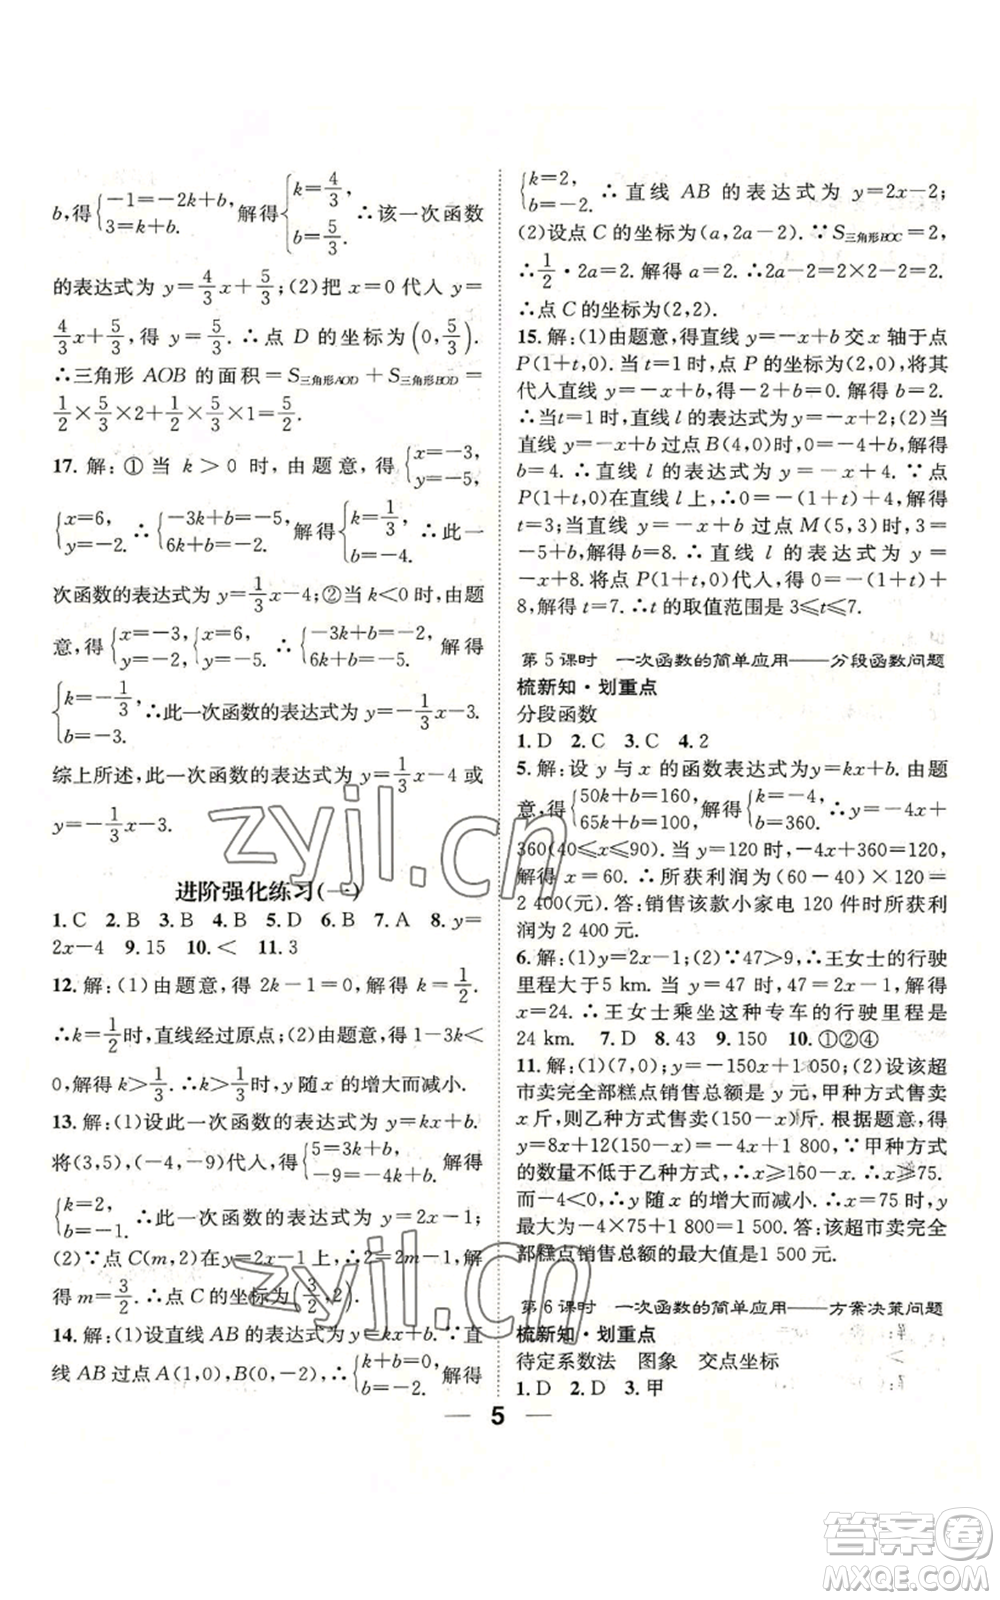 b,得{-1=-2k+b, 3=k+b. 解得{k=4/3, b=5/3. ∴该一次函数
的表达式为 y=4/3x+5/3;(2)把 x=0 代入 y=
4/3x+5/3,得 y=5/3. ∴点 D 的坐标为(0,5/3).
∴三角形 AOB 的面积=S三角形AOD+S三角形BOD=
1/2×5/3×2+1/2×5/3×1=5/2.
17. 解:①当 k>0 时,由题意,得{x=-3, y=-5,
{x=6, y=-2. ∴{-3k+b=-5, 6k+b=-2. 解得{k=1/3, b=-4. ∴此一
次函数的表达式为 y=1/3x-4;②当 k<0 时,由题
意,得{x=-3, y=-2, {x=6, y=-5. ∴{-3k+b=-2, 6k+b=-5. 解得
{k=-1/3, b=-3. ∴此一次函数的表达式为 y=-1/3x-3.
综上所述,此一次函数的表达式为 y=1/3x-4 或
y=-1/3x-3.
进阶强化练习(一)
1. C 2. B 3. B 4. B 5. D 6. B 7. A 8. y=
2x-4 9. 15 10. < 11. 3
12. 解:(1)由题意,得 2k-1=0,解得 k=1/2.
∴k=1/2时,直线经过原点;(2)由题意,得 1-3k<
0,解得 k>1/3. ∴k>1/3时,y 随 x 的增大而减小.
13. 解:(1)设此一次函数的表达式为 y=kx+b.
将(3,5),(-4,-9)代入,得{5=3k+b, -9=-4k+b. 解得
{k=2, b=-1. ∴此一次函数的表达式为 y=2x-1;
(2)∵点 C(m,2)在 y=2x-1 上,∴2=2m-1,解
得 m=3/2. ∴点 C 的坐标为(3/2,2).
14. 解:(1)设直线 AB 的表达式为 y=kx+b. ∵直
线 AB 过点 A(1,0),B(0,-2),∴{k+b=0, b=-2. 解得
{k=2, b=-2. ∴直线 AB 的表达式为 y=2x-2;
(2)设点 C 的坐标为(a,2a-2). ∵S三角形BOC=2,
∴1/2·2a=2. 解得 a=2. ∴2a-2=2×2-2=2.
∴点 C 的坐标为(2,2).
15. 解:(1)由题意,得直线 y=-x+b 交 x 轴于点
P(1+t,0). 当 t=1 时,点 P 的坐标为(2,0),将其
代入直线 y=-x+b,得-2+b=0. 解得 b=2.
∴当 t=1 时,直线 l 的表达式为 y=-x+2;(2)当
直线 y=-x+b 过点 B(4,0)时,0=-4+b,解得
b=4. ∴直线 l 的表达式为 y=-x+4. ∵点
P(1+t,0)在直线 l 上,∴0=-(1+t)+4,解得
t=3;当直线 y=-x+b 过点 M(5,3)时,3=
-5+b,解得 b=8. ∴直线 l 的表达式为 y=
-x+8. 将点 P(1+t,0)代入,得 0=-(1+t)+
8,解得 t=7. ∴t 的取值范围是 3≤t≤7.
第 5 课时 一次函数的简单应用——分段函数问题
梳新知·划重点
分段函数
1. D 2. C 3. C 4. 2
5. 解:设 y 与 x 的函数表达式为y=kx+b. 由题
意,得{50k+b=160, 65k+b=100. 解得{k=-4, b=360. ∴y=-4x+
360(40≤x≤90). 当 y=120 时,-4x+360=120,
解得 x=60. ∴所获利润为 120×(60-40)=
2 400(元). 答:销售该款小家电 120 件时所获利
润为 2 400 元.
6. 解:(1)y=2x-1;(2)∵47>9,∴王女士的行驶
里程大于5 km. 当 y=47 时,47=2x-1,解得
x=24. ∴王女士乘坐这种专车的行驶里程是
24 km. 7. D 8. 43 9. 150 10. ①②④
11. 解:(1)(7,0);y=-150x+1 050;(2)设该超
市卖完全部糕点销售总额是 y 元,甲种方式售卖
x 斤,则乙种方式售卖(150-x)斤. 根据题意,得
y=8x+12(150-x)=-4x+1 800,∵甲种方式
的数量不低于乙种方式,∴x≥150-x. ∴x≥75.
而-4<0,∴y 随 x 的增大而减小. ∴x=75 时,y
最大为-4×75+1 800=1 500. 答:该超市卖完全
部糕点销售总额的最大值是1 500 元.
第 6 课时 一次函数的简单应用——方案决策问题
梳新知·划重点
待定系数法 图象 交点坐标
1. D 2. D 3. 甲
5
zyjl.cn
zyjl.cn
答案圈
MXQE.COM